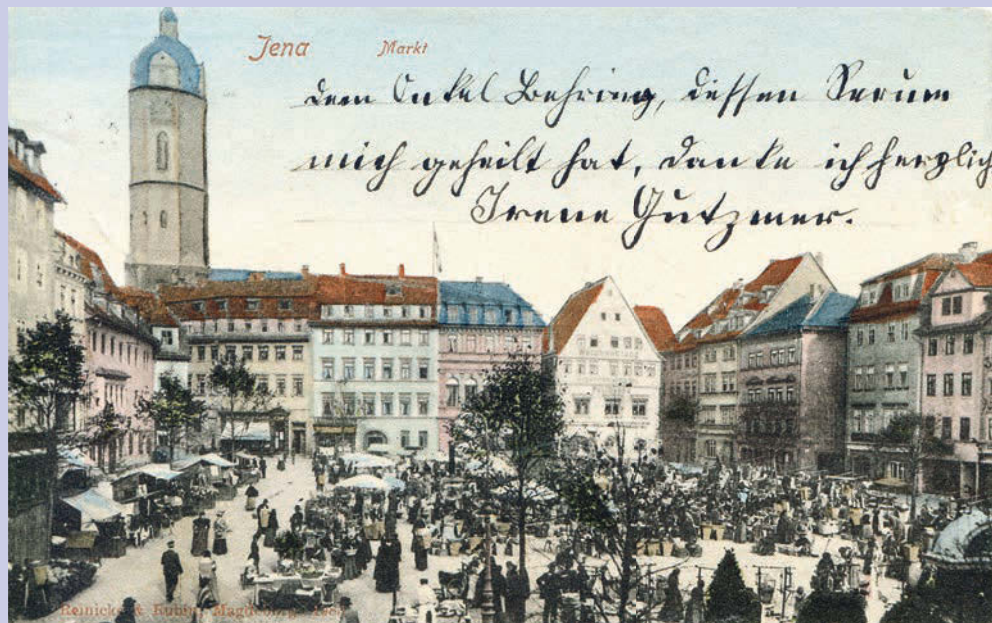 Jena Markt
dem Onkel Behring, dessen Serum
mich geheilt hat, danke ich herzlich
Irene Gutzmer.
Reinicke & Rubin, Magdeburg